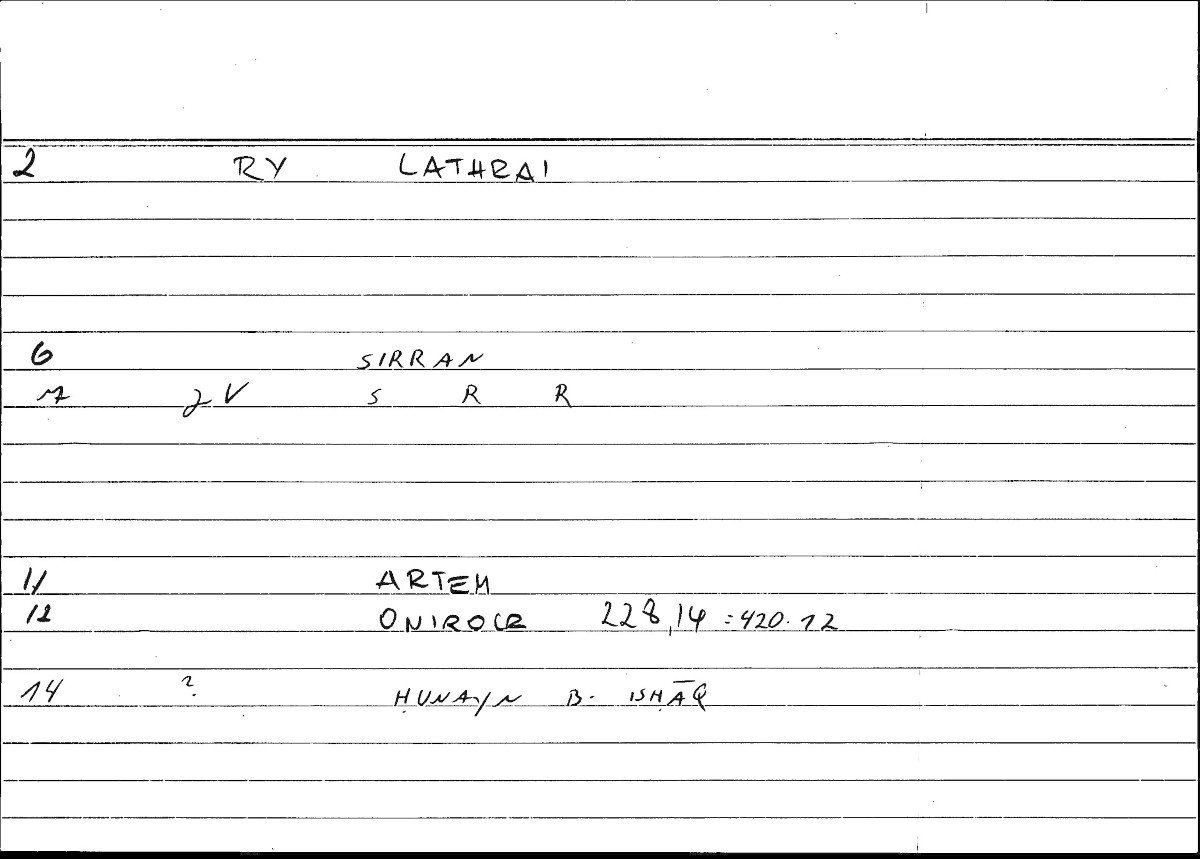 2 RY LATHRAI
6 SIRRAN
7 gV S R R
11 ARTEM
12 ONIROCR 228,14 = 420.12
14 ? ḤUNAYN B. ISḤĀQ